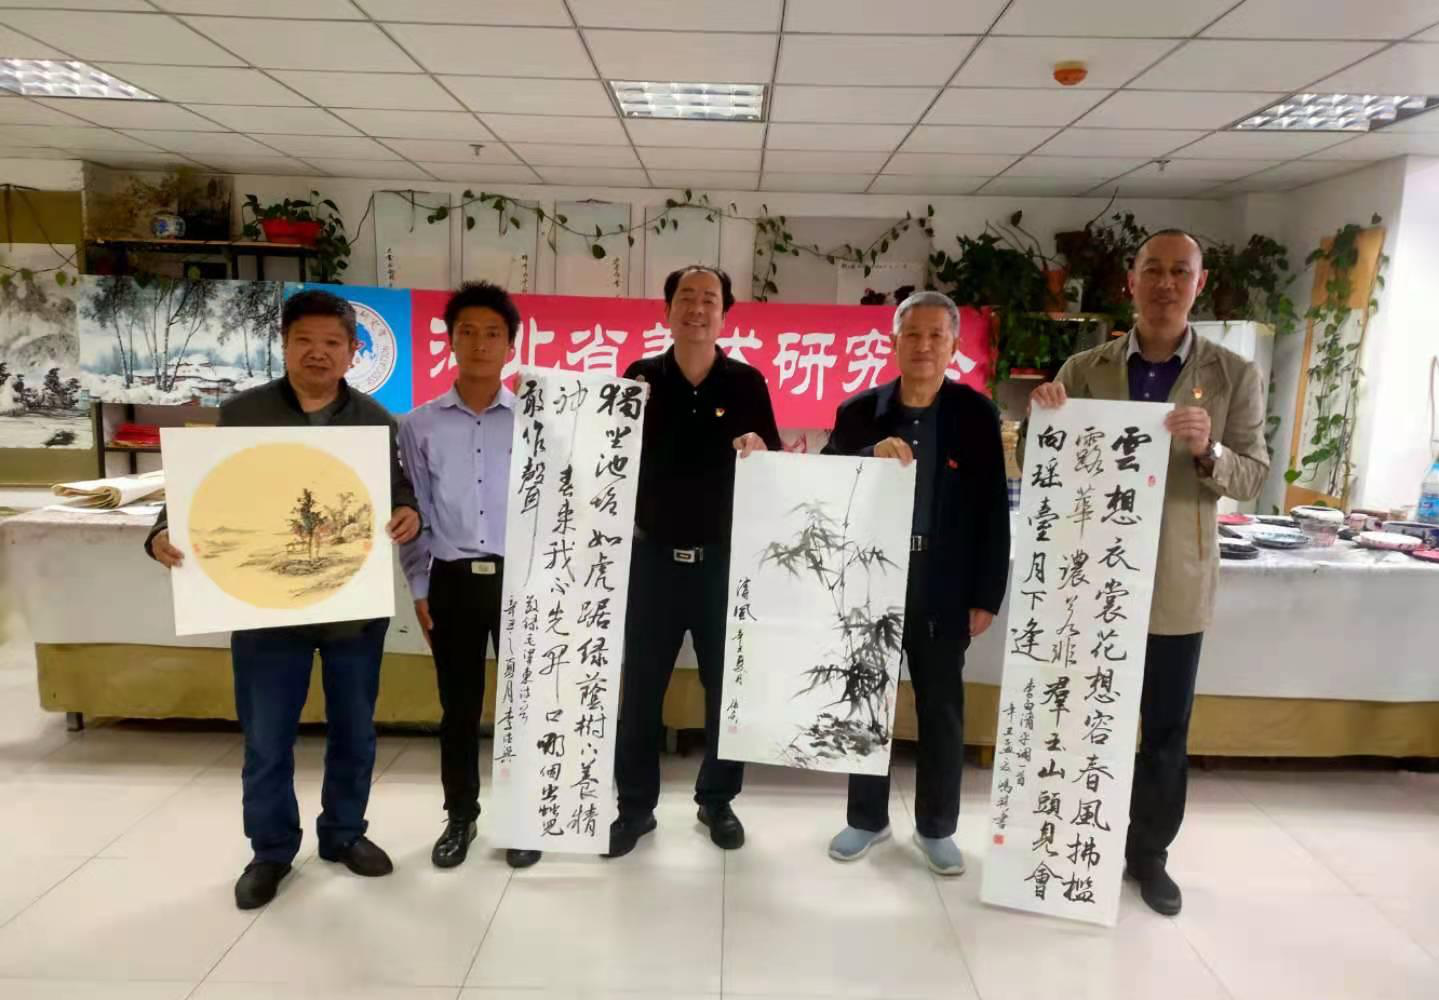 河北省美术研究会
獨坐池塘如虎踞綠蔭樹下養精
神春來我不先開口哪個虫兒
敢作聲
敬録毛澤東詩一首
辛丑之夏月李
清風
辛丑夏月
雲想衣裳花想容春風拂檻
露華濃若非群玉山頭見會
向瑶臺月下逢
李白清平调一首
辛丑孟夏